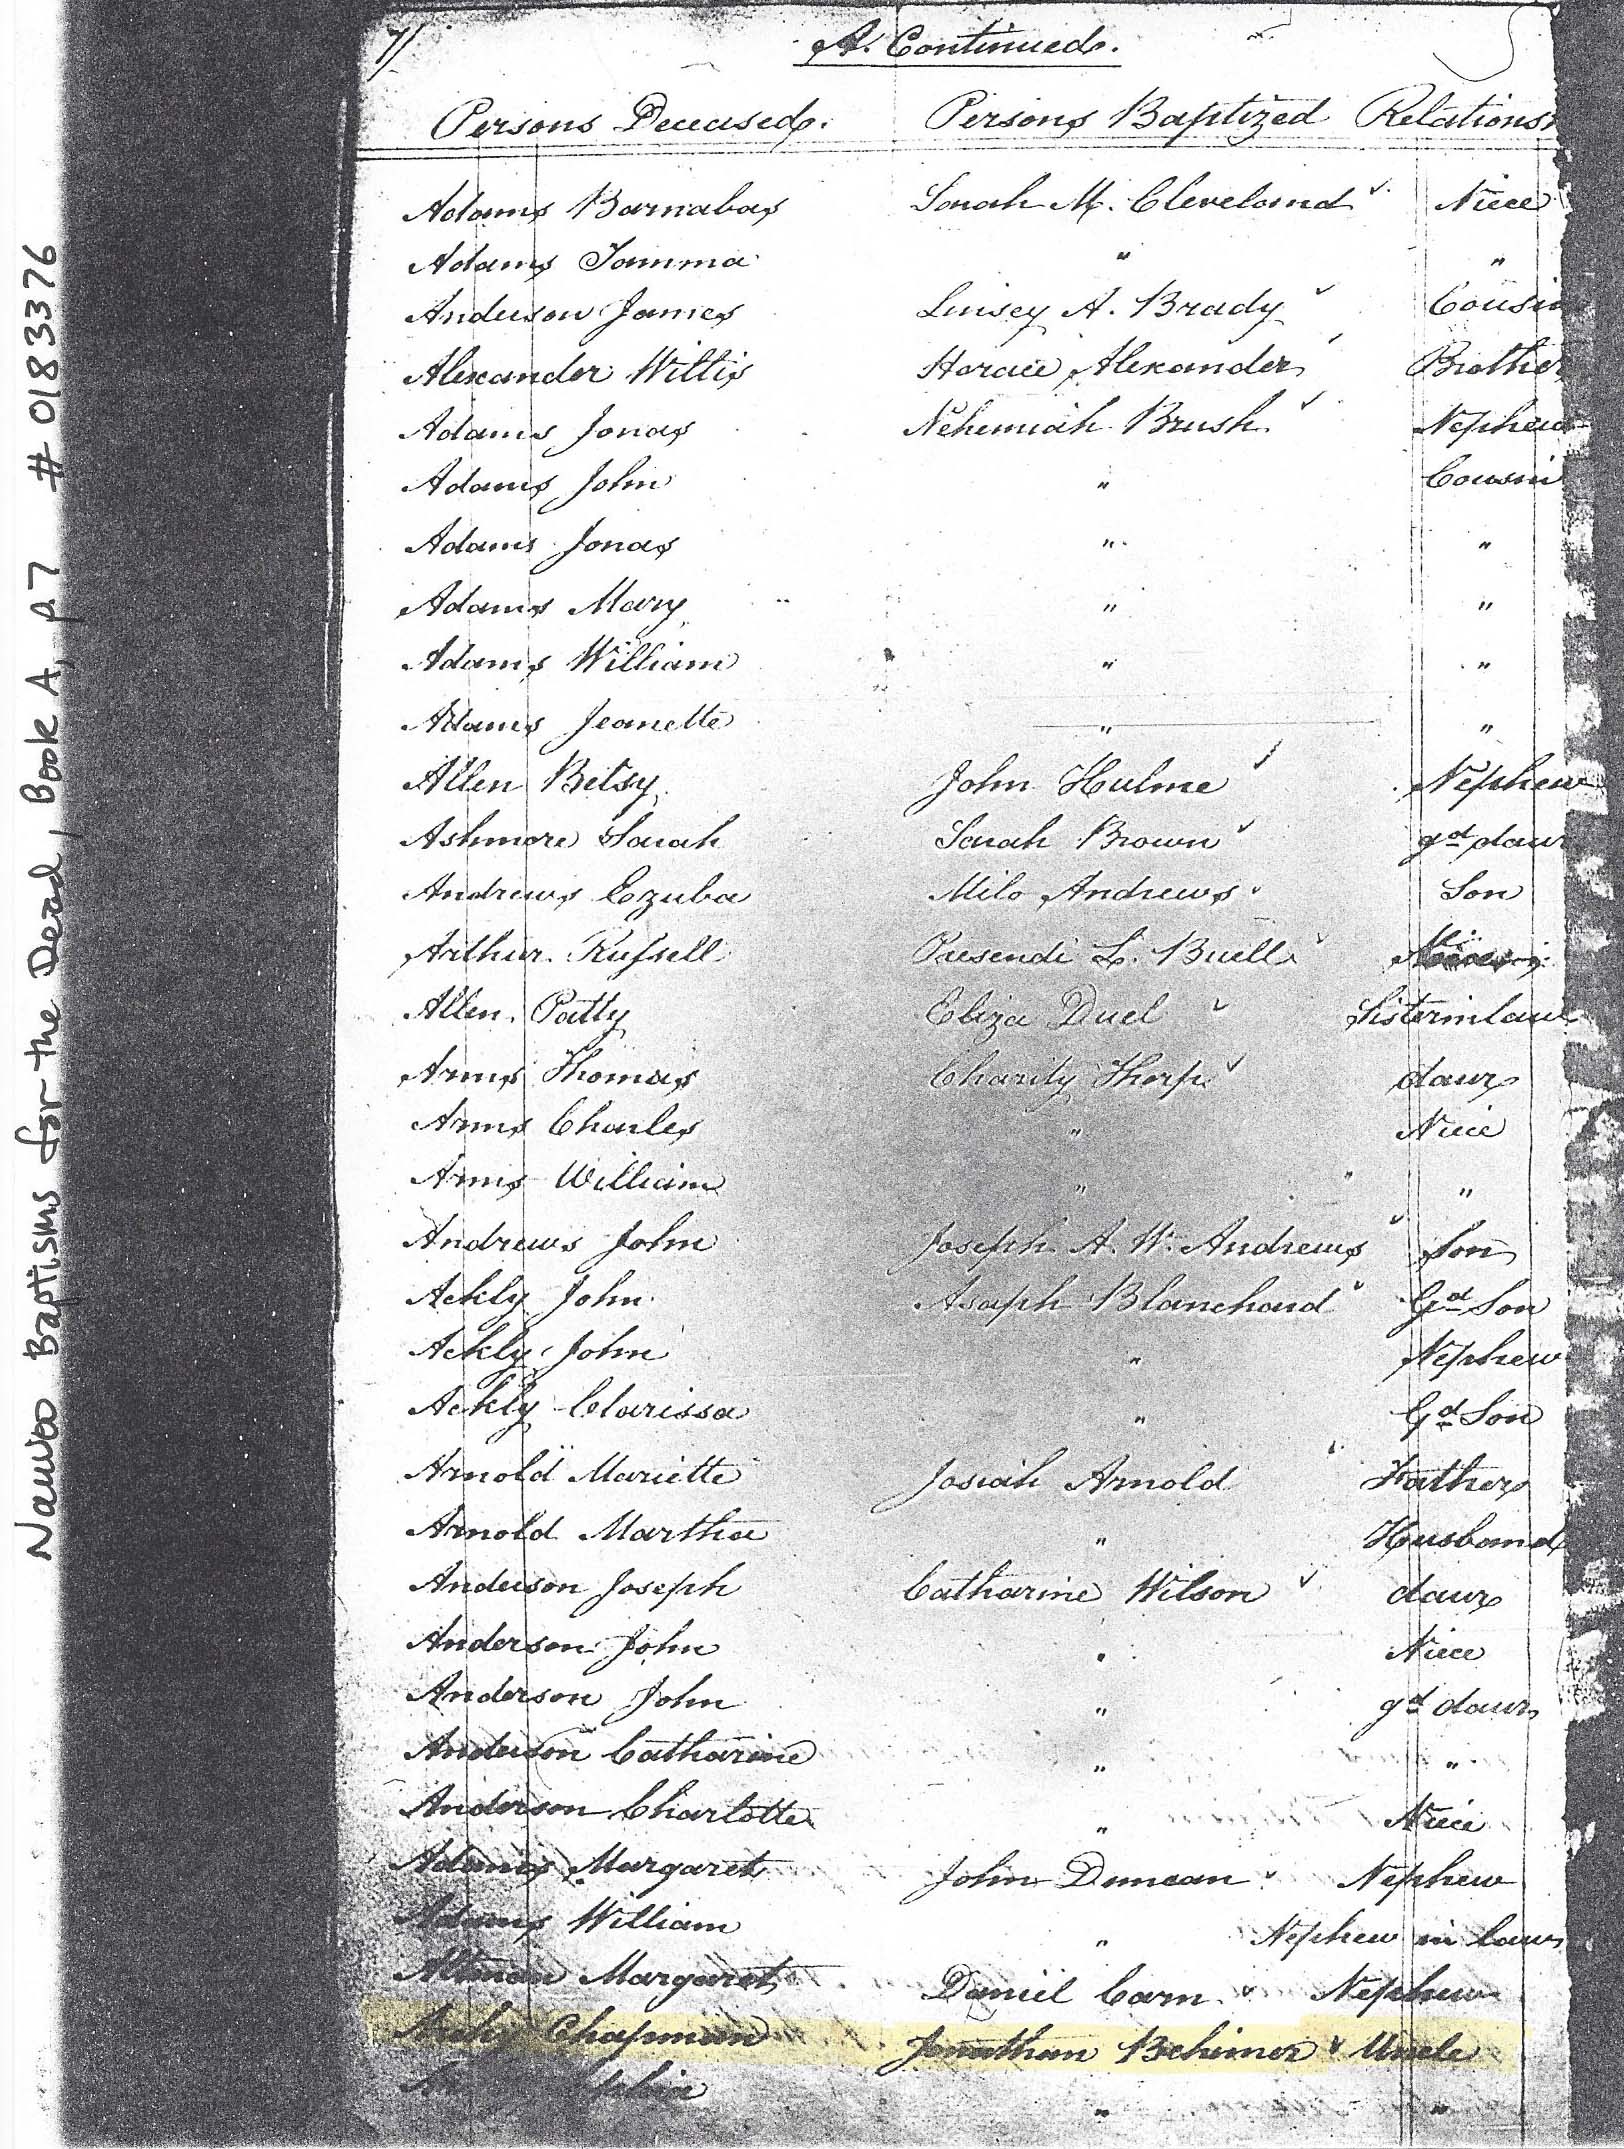 7/ A. Continued.
Persons Deceased. Persons Baptized Relations
Adams Barnabas Sarah M. Cleveland Niece
Adams Tamma " "
Anderson James Linsey A. Brady Cousin
Alexander Willis Horace Alexander Brother
Adams Jonas Nehemiah Brush Nephew
Adams John " Cousin
Adams Jonas " "
Adams Mary " "
Adams William " "
Adams Jeanette " "
Allen Betsy John Hulme Nephew
Ashmore Sarah Sarah Brown gd daur
Andrews Ezuba Milo Andrews Son
Arthur Russell Presendi L. Buell
Allen Patty Eliza Duel Sister in law
Arms Thomas Charity Thorp daur
Arms Charles " Niece
Arms William " "
Andrews John Joseph A. W. Andrews Son
Ackly John Asaph Blanchard Gd Son
Ackly John " Nephew
Ackly Clarissa " Gd Son
Arnold Mariette Josiah Arnold Father
Arnold Martha " Husband
Anderson Joseph Catharine Wilson daur
Anderson John " Niece
Anderson John " gd daur
Anderson Catharine " "
Anderson Charlotte " Niece
Adams Margaret John Duncan Nephew
Adams William " Nephew in law
Altman Margaret Daniel Carn Nephew
Chapman Jonathan Behimer Uncle
" "
Nauvoo Baptisms for the Dead, Book A, p7 # 0183376